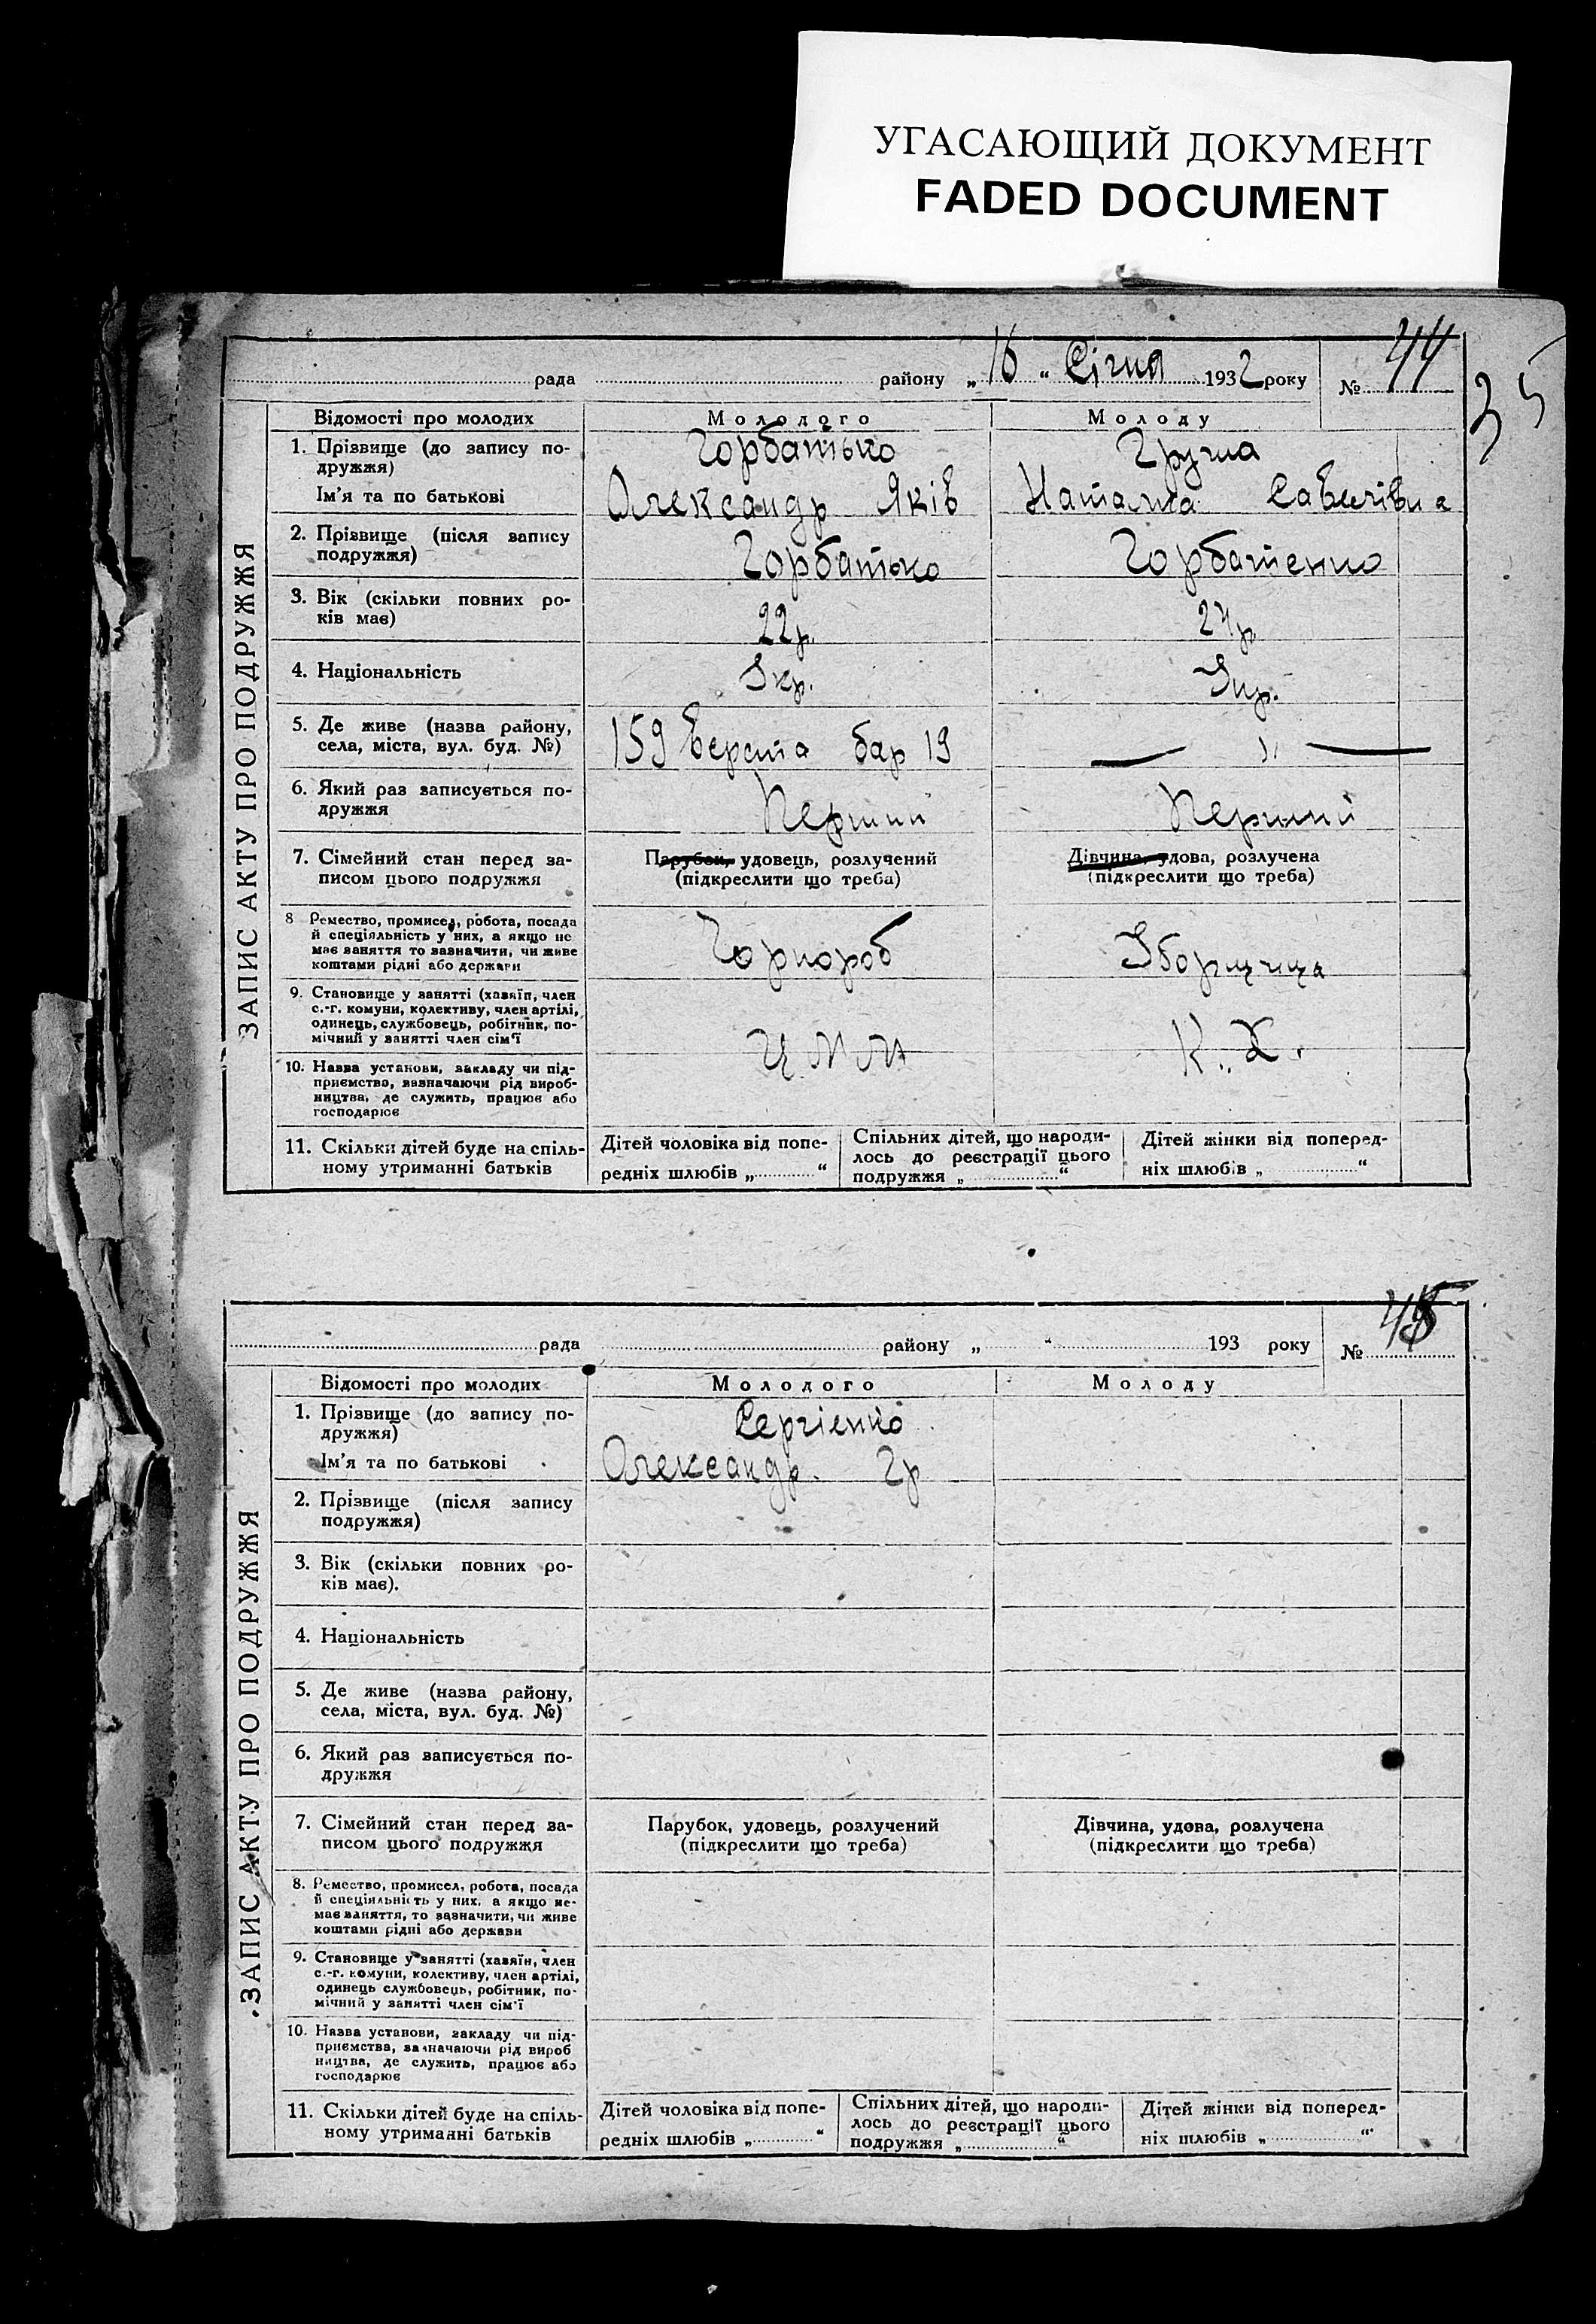 УГАСАЮЩИЙ ДОКУМЕНТ
FADED DOCUMENT
35
ЗАПИС АКТУ ПРО ПОДРУЖЖЯ
рада району „16“ Січня 1932 року № 44
Відомості про молодих Молодого Молоду
1. Прізвище (до запису по-
дружжя) Горбатько Груша
Ім’я та по батькові Олександр Яків Наталка Савичівна
2. Прізвище (після запису
подружжя) Горбатько Горбатенко
3. Вік (скільки повних ро-
ків має) 22р. 24р.
4. Національність Укр. Укр.
5. Де живе (назва району,
села, міста, вул. буд. №) 159 Верста бар 19 — „ —
6. Який раз записується по-
дружжя Перший Перший
7. Сімейний стан перед за- Парубок, удовець, розлучений Дівчина, удова, розлучена
писом цього подружжя (підкреслити що треба) (підкреслити що треба)
8 Ремество, промисел, робота, посада
й спеціяльність у них, а якщо не
має заняття то зазначити, чи живе
коштами рідні або держави Горнороб Уборщица
9. Становище у занятті (хазяїн, член
с.-г. комуни, колективу, член артілі,
одинець, службовець, робітник, по-
мічний у занятті член сім’ї К. Х.
10. Назва установи, закладу чи під-
приємство, зазначаючи рід вироб-
ництва, де служить, працює або
господарює
11. Скільки дітей буде на спіль-
ному утриманні батьків
Дітей чоловіка від попе-
редніх шлюбів „ “
Спільних дітей, що народи-
лось до реєстрації цього
подружжя „ “
Дітей жінки від поперед-
ніх шлюбів „ “
ЗАПИС АКТУ ПРО ПОДРУЖЖЯ
рада району „ “ 193 року № 45
Відомості про молодих Молодого Молоду
1. Прізвище (до запису по-
дружжя) Сергієнко
Ім’я та по батькові Олександр Гр
2. Прізвище (після запису
подружжя)
3. Вік (скільки повних ро-
ків має).
4. Національність
5. Де живе (назва району,
села, міста, вул. буд. №)
6. Який раз записується по-
дружжя
7. Сімейний стан перед за- Парубок, удовець, розлучений Дівчина, удова, розлучена
писом цього подружжя (підкреслити що треба) (підкреслити що треба)
8. Ремество, промисел, робота, посада
й спеціяльність у них, а якщо не-
має заняття, то зазначити, чи живе
коштами рідні або держави
9. Становище у занятті (хазяїн, член
с.-г. комуни, колективу, член артілі,
одинець службовець, робітник, по-
мічний у занятті член сім’ї
10. Назва установи, закладу чи під-
приємства, зазначаючи рід вироб
ництва, де служить, працює або
господарює
11. Скільки дітей буде на спіль-
ному утриманні батьків
Дітей чоловіка від попе-
редніх шлюбів „ “
Спільних дітей, що народи-
лось до реєстрації цього
подружжя „ “
Дітей жінки від поперед-
ніх шлюбів „ “